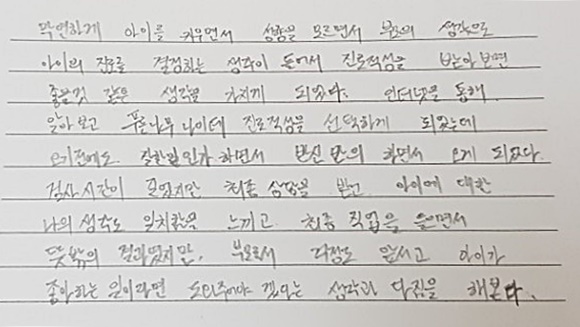 막연하게 아이를 키우면서 성향을 모르면서 부모의 생각으로
아이의 진로를 결정하는 생각이 들어서 진로적성을 받아보면
좋을것 같은 생각을 가지게 되었다. 인터넷을 통해
알아보고 푸른나무 나이테 진로적성을 선택하게 되었는데
오기전에도 잘한일인가 하면서 반신반의 하면서 오게 되었다.
검사시간이 길었지만 최종 상담을 받고 아이에 대한
나의 생각도 일치함을 느끼고 최종 직업을 들으면서
뜻밖의 결과였지만, 부모로서 걱정도 앞서고 아이가
좋아하는 일이라면 도와주어야 겠다는 생각과 다짐을 해본다.